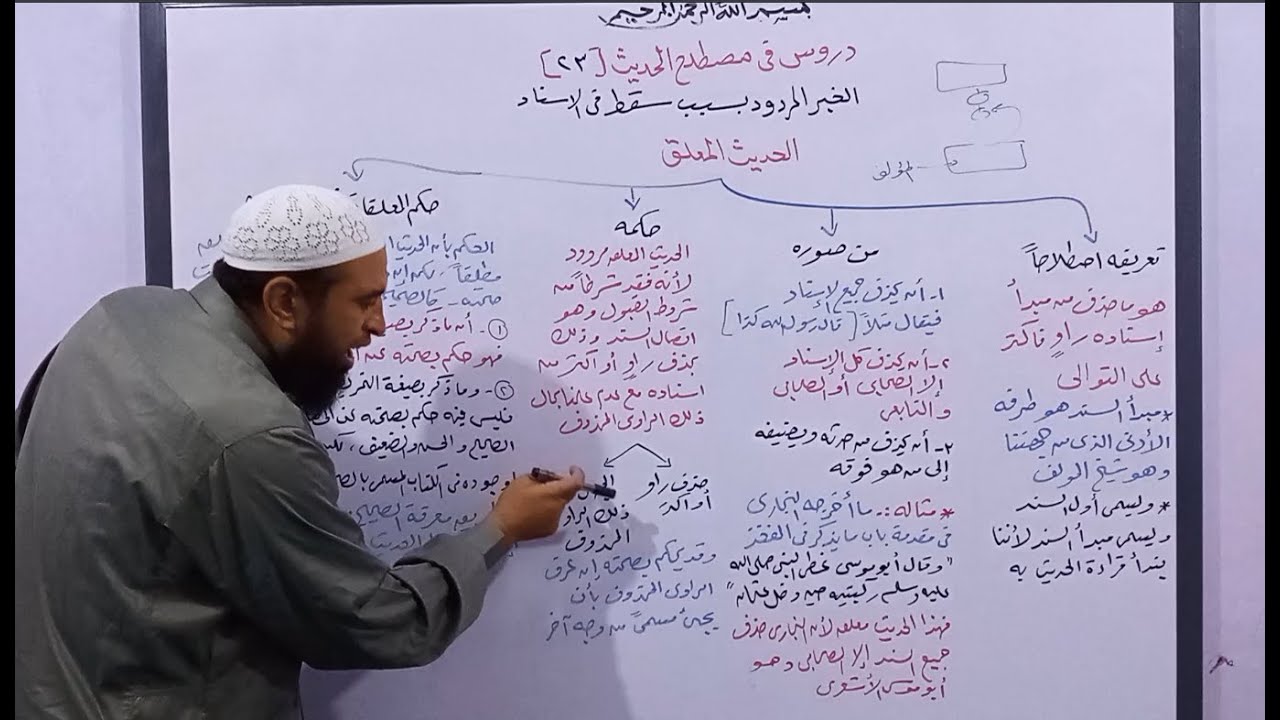 بسم الله الرحمن الرحيم
دروس في مصطلح الحديث [٢٣]
الخبر المردود بسبب سقط في الاسناد
الحديث المعلق
المؤلف
تعريفه اصطلاحاً
هو ما حذف من مبدأ
إسناده راوٍ فأكثر
على التوالى
* مبدأ السند هو طرفه
الأدنى الذى من جهتنا
وهو شيخ المؤلف
* ويسمى أول السند
ويسمى مبدأ السند لأننا
نبدأ قراءة الحديث به
من صوره
١- أن يحذف جميع الإسناد
فيقال مثلاً [قال رسول الله كذا]
٢- أن يحذف كل الإسناد
إلا الصحابى أو الصحابى
والتابعى
٣- أن يحذف من حدثه ويضيفه
إلى من هو فوقه
* مثاله:- ما أخرجه البخارى
فى مقدمة باب ما يذكر فى الفخذ
"وقال أبو موسى غطى النبى صلى الله
عليه وسلم ركبتيه حين دخل عثمان"
فهذا الحديث معلق لأن البخارى حذف
جميع السند إلا الصحابى وهو
أبو موسى الأشعرى
حكمه
الحديث المعلق مردود
لأنه فقد شرطاً من
شروط القبول وهو
اتصال السند وذلك
بحذف راوٍ أو أكثر من
اسناده مع عدم علمنا بحال
ذلك الراوى المحذوف
حذف راو
أو أكثر
ذلك الراو
المحذوف
وقد يحكم بصحته إن عرف
الراوى المحذوف بأن
يجئ مسمىً من وجه آخر
حكم المعلقا
الحكم بأن الحديث ا
مطلقاً، لكن إن
صحته - كالصحيح
١- أن ما ذكر بصي
فهو حكم بصحته عن ا
٢- وما ذكر بصيغة التمر
فليس فيه حكم بصحته عن المض
الصحيح والحسن والضعيف، لكن
لوجوده فى الكتاب المسمى بالص
معرفة الصحيح